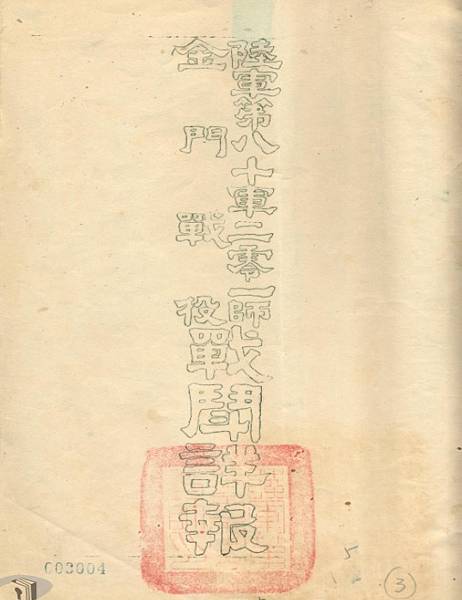 陸軍第八十軍二零一師
金門戰役
戰鬪詳報
003004
5
3